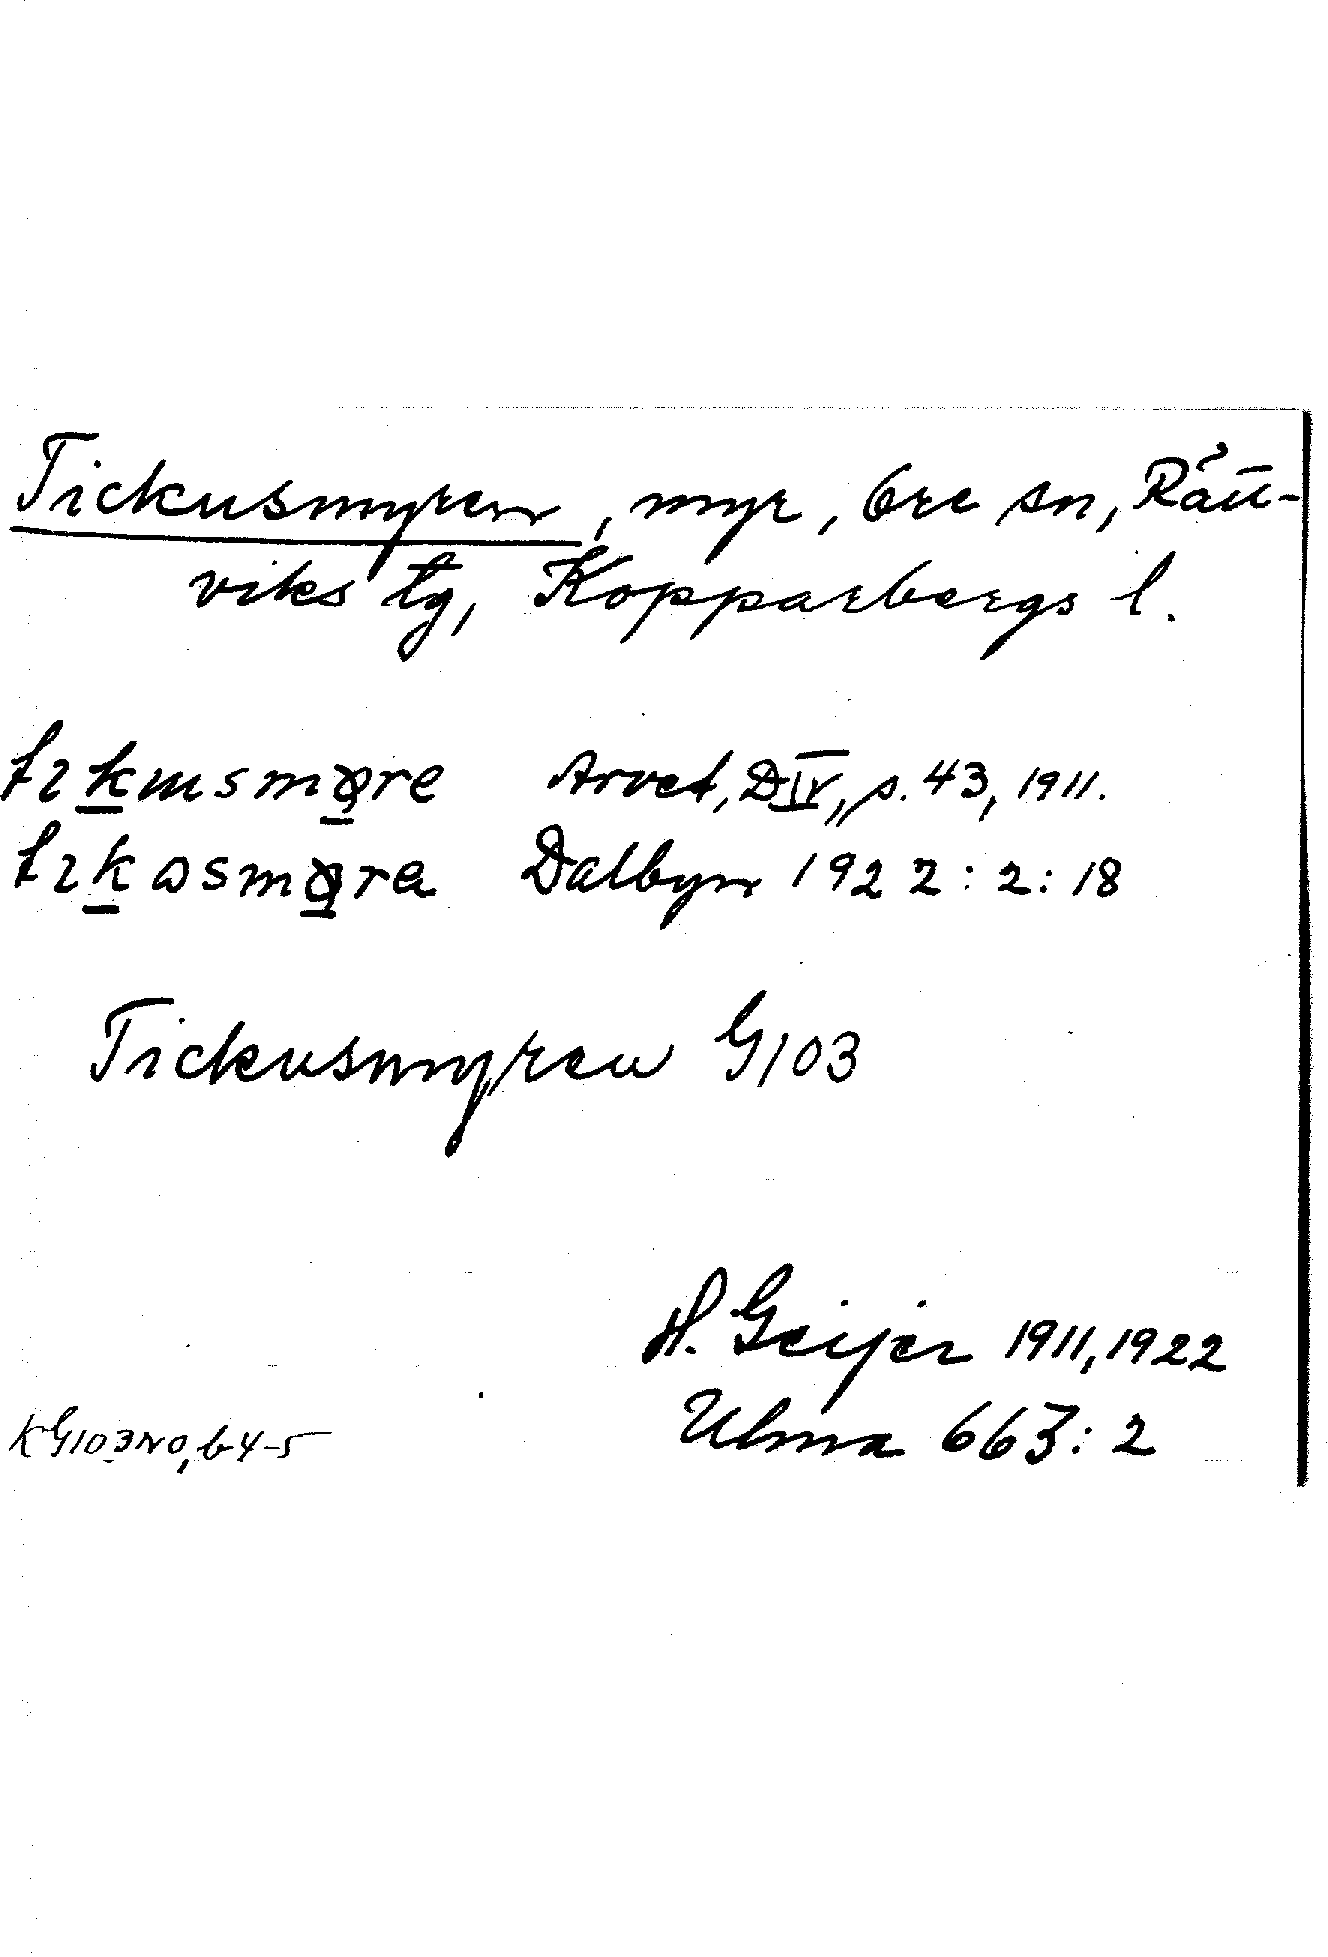 Tickusmyren, myr, Ore sn, Rätt-
viks tg, Kopparbergs l.
Arvet, DIV, s. 43, 1911.
Dalbyn 1922:2:18
Tickusmyren G103
H. Geijer 1911, 1922
Ulma 663:2
KG103NO, b 4-5